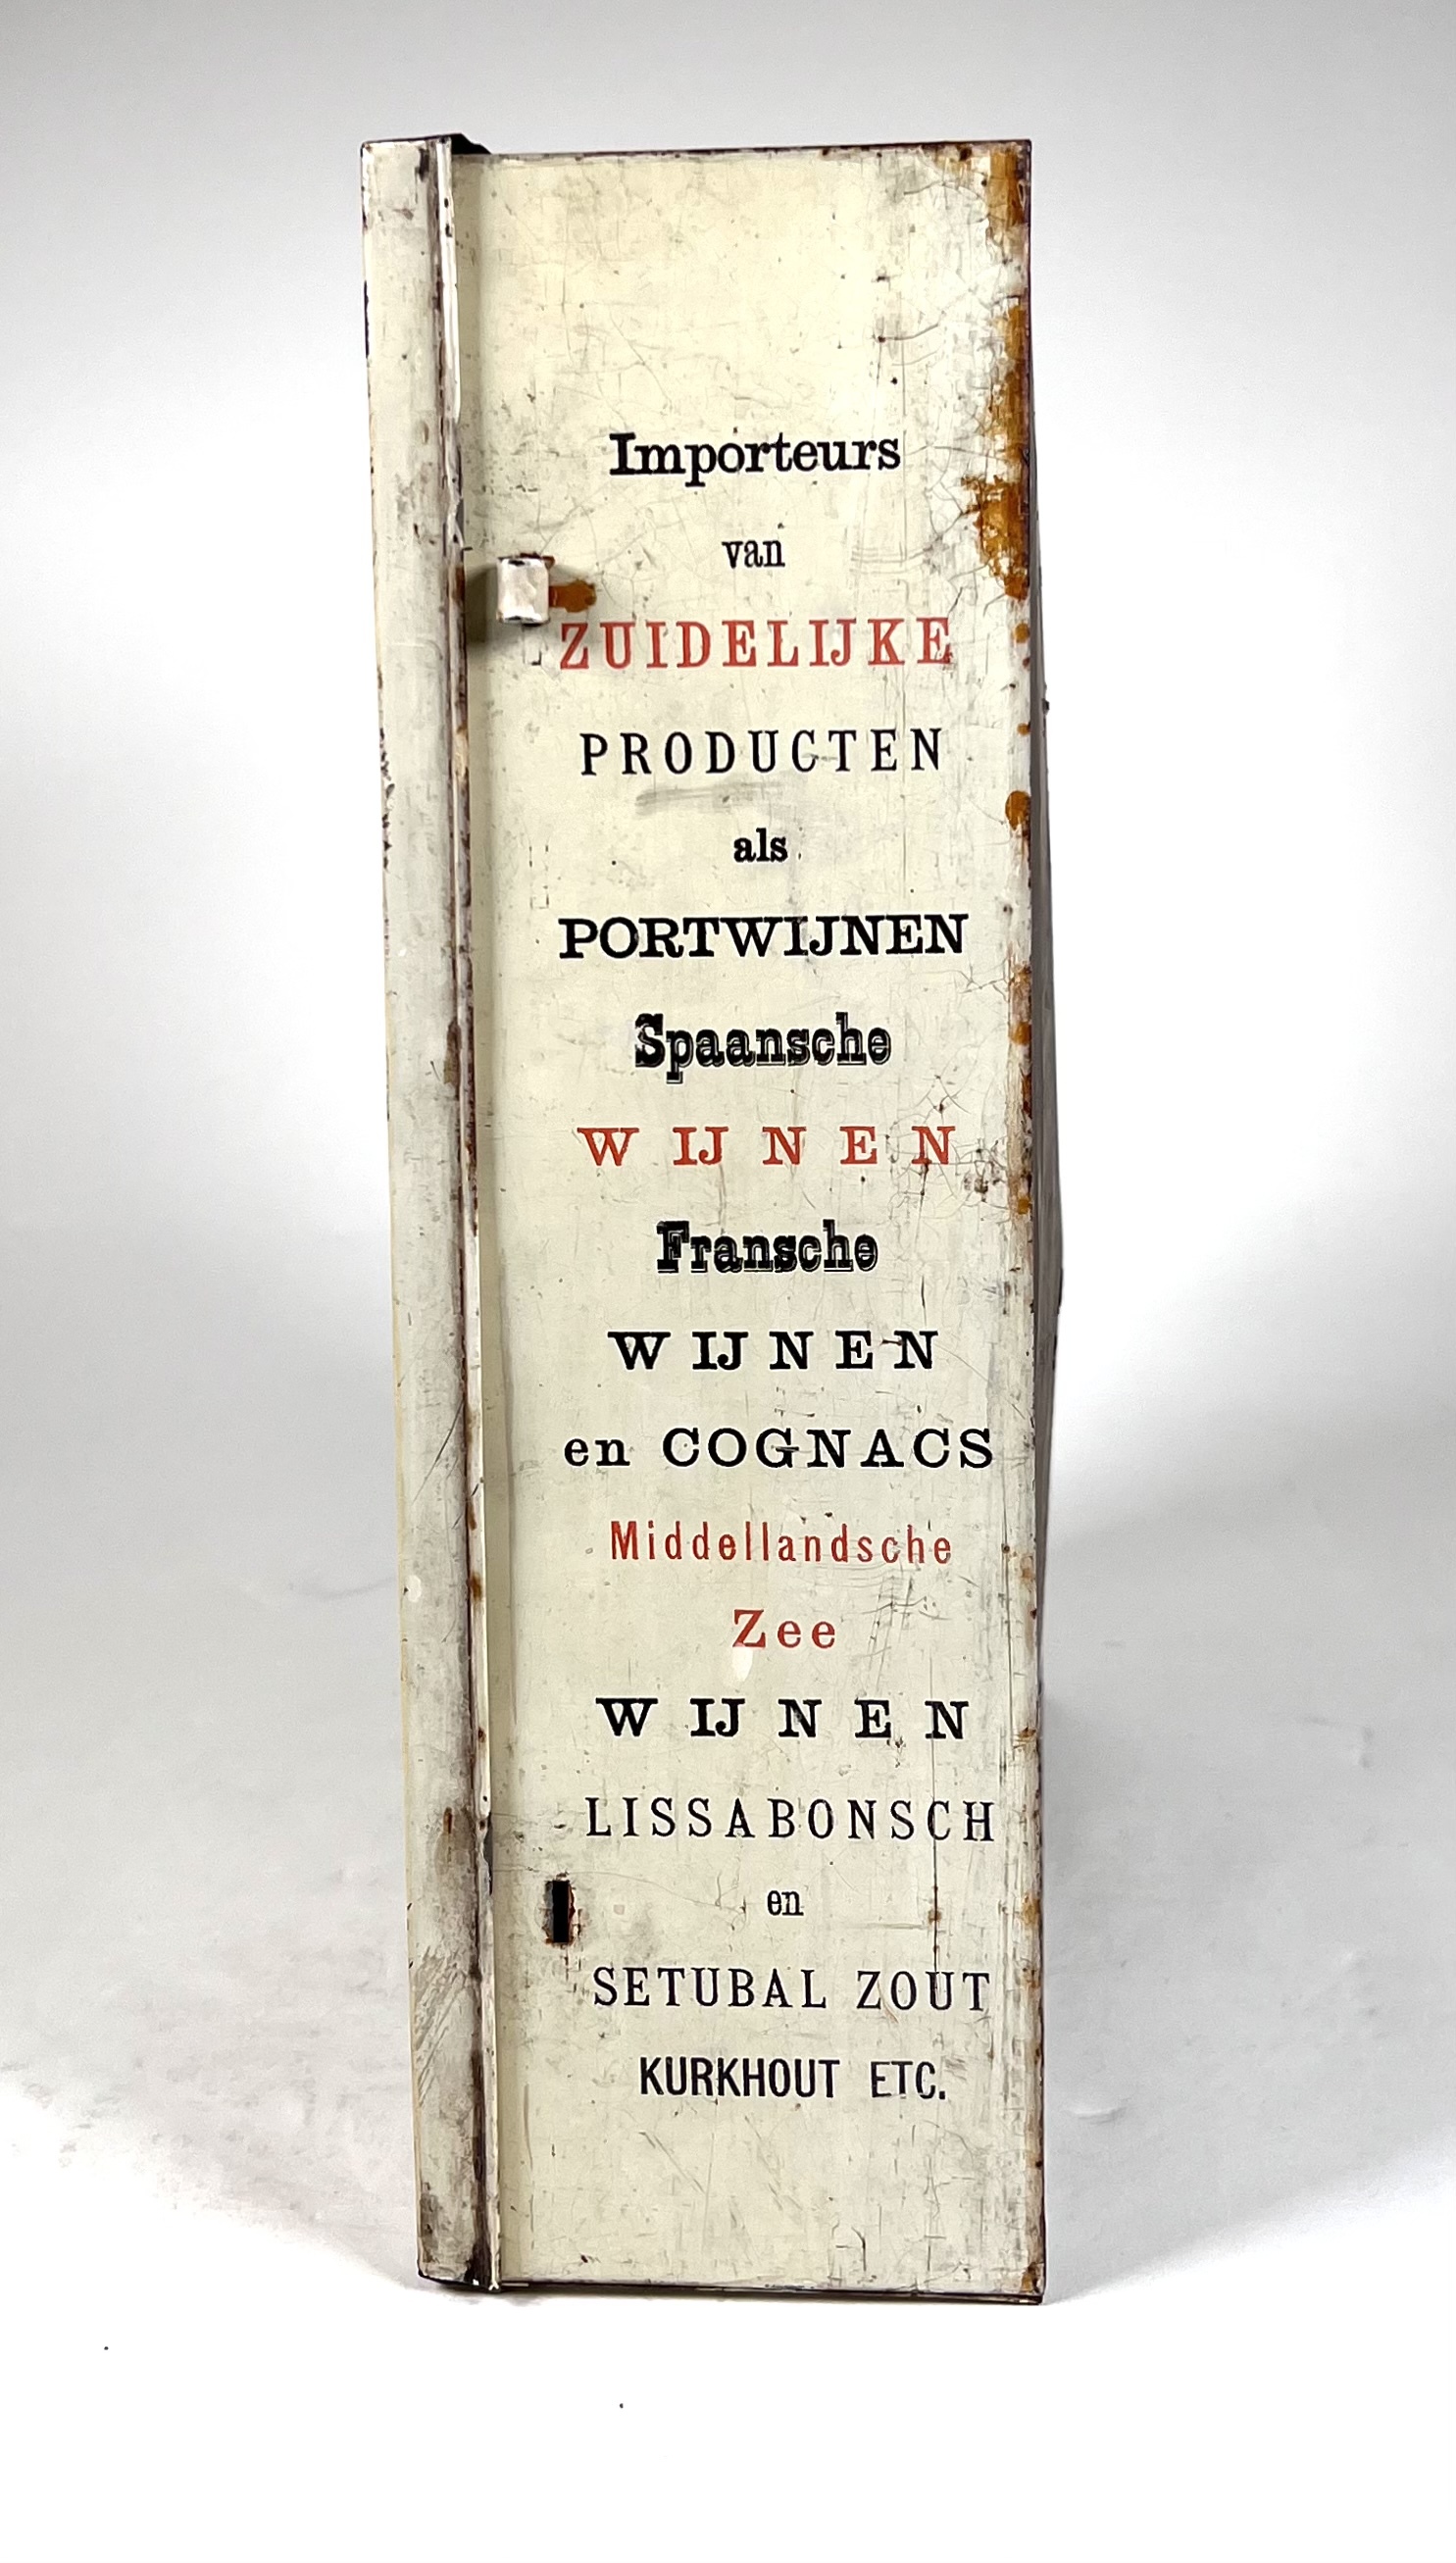 Importeurs
van
ZUIDELIJKE
PRODUCTEN
als
PORTWIJNEN
Spaansche
WIJNEN
Fransche
WIJNEN
en COGNACS
Middellandsche
Zee
WIJNEN
LISSABONSCH
en
SETUBAL ZOUT
KURKHOUT ETC.